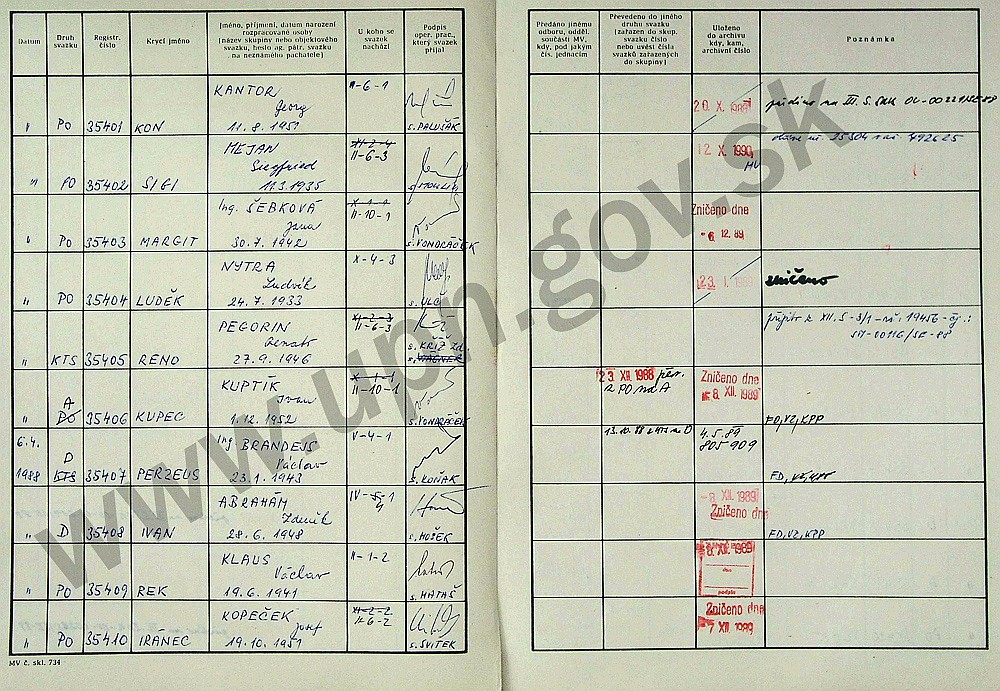 Datum
Druh
svazku
Registr.
číslo
Krycí jméno
Jméno, příjmení, datum narození
rozpracované osoby
(název skupiny nebo objektového
svazku, heslo ag. pátr. svazku
na neznámého pachatele)
U koho se
svazek
nachází
Podpis
oper. prac.,
který svazek
přijal
Předáno jinému
odboru, odděl.
součásti MV,
kdy, pod jakým
čís. jednacím
Převedeno do jiného
druhu svazku
(zařazen do skup.
svazku číslo
nebo uvést čísla
svazků zařazených
do skupiny)
Uloženo
do archivu
kdy, kam,
archivní číslo
Poznámka
KANTOR II-6-1
Georg
" PO 35401 KON 11.8.1951 s. PALUŠÁK
20 X. 1989
MEJAN XI-2-4
Siegfried II-6-3
" PO 35402 SIGI 11.3.1935
12 X. 1990
MV
Ing. ŠEBKOVÁ X-1-1
Jana II-10-1
" PO 35403 MARGIT 30.7.1942 s. VONDRÁČEK
Zničeno dne
-6. 12. 89
NYTRA X-4-3
Ludvík
" PO 35404 LUDĚK 24.7.1933 s. ULC
23 I. zničeno
PEGORIN XI-2-3
Renato II-6-3
s. KŘÍŽ Zd.
" KTS 35405 RENO 27.9.1946 s. WAGNER
KUPTÍK X-1-1
Ivan II-10-1
A
" PO 35406 KUPEC 1.12.1952 s. VONDRÁČEK
23. XII. 1988 per.
z PO, na A
Zničeno dne
8. XII. 1989
FD, VZ, KPP
6.4. Ing. BRANDEJS V-4-1
D Václav
1988 KTS 35407 PERZEUS 23.1.1943 s. KOŇAK
13.10.88 z KTS na D
4.5.89
805 909
FD,
ABRAHÁM IV-5-1
Zdeněk 4
" D 35408 IVAN 28.6.1948 s. HOŠEK
-8. XII. 1989
Zničeno dne
FD, VZ, KPP
KLAUS II-1-2
Václav
" PO 35409 REK 19.6.1941 s. MATAŠ
8. XII. 1989
dne
podpis
KOPEČEK XI-2-2
Josef II-6-2
" PO 35410 IRÁNEC 19.10.1951 s. SVITEK
Zničeno dne
7 XII. 1989
MV č. skl. 734
www.upn.gov.sk